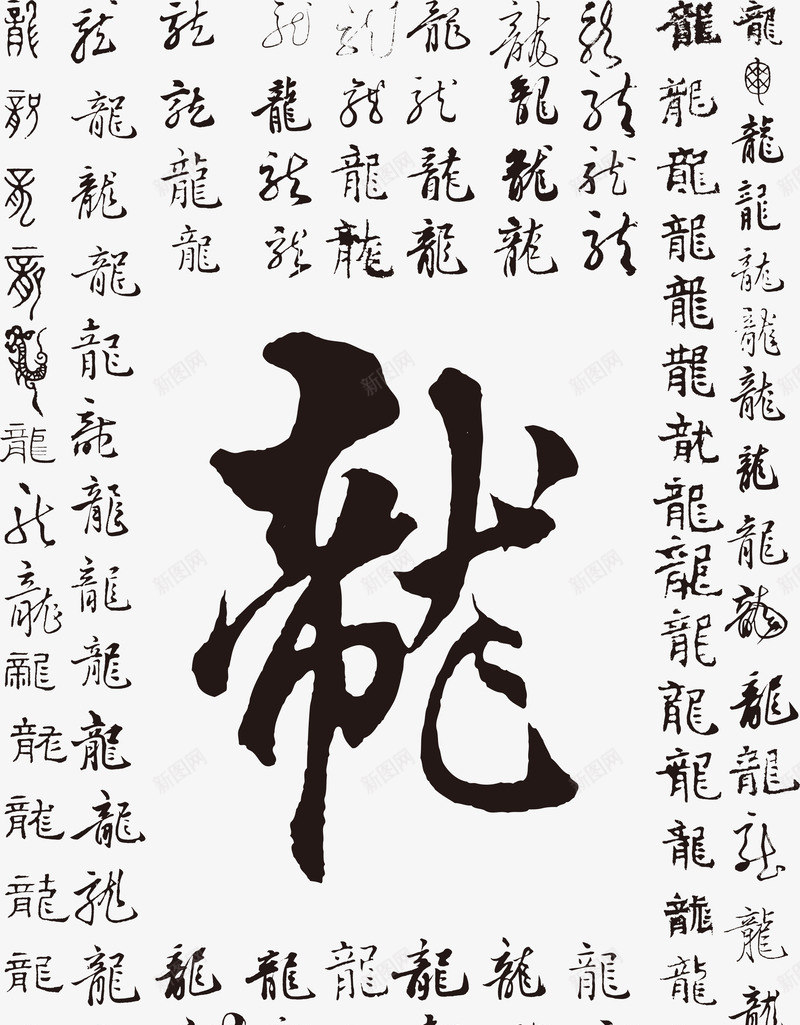 龍龍龍龍龍龍龍龍龍龍龍龍龍龍
龍龍龍龍龍龍龍龍龍龍龍龍龍龍龍
龍龍龍龍
龍龍龍龍
龍龍龍龍
龍龍龍龍
龍龍龍龍
龍龍龍龍
龍
龍龍龍龍龍龍
龍龍龍龍龍龍龍龍龍龍龍龍龍
龍龍龍龍龍龍龍龍龍龍龍龍龍
新图网